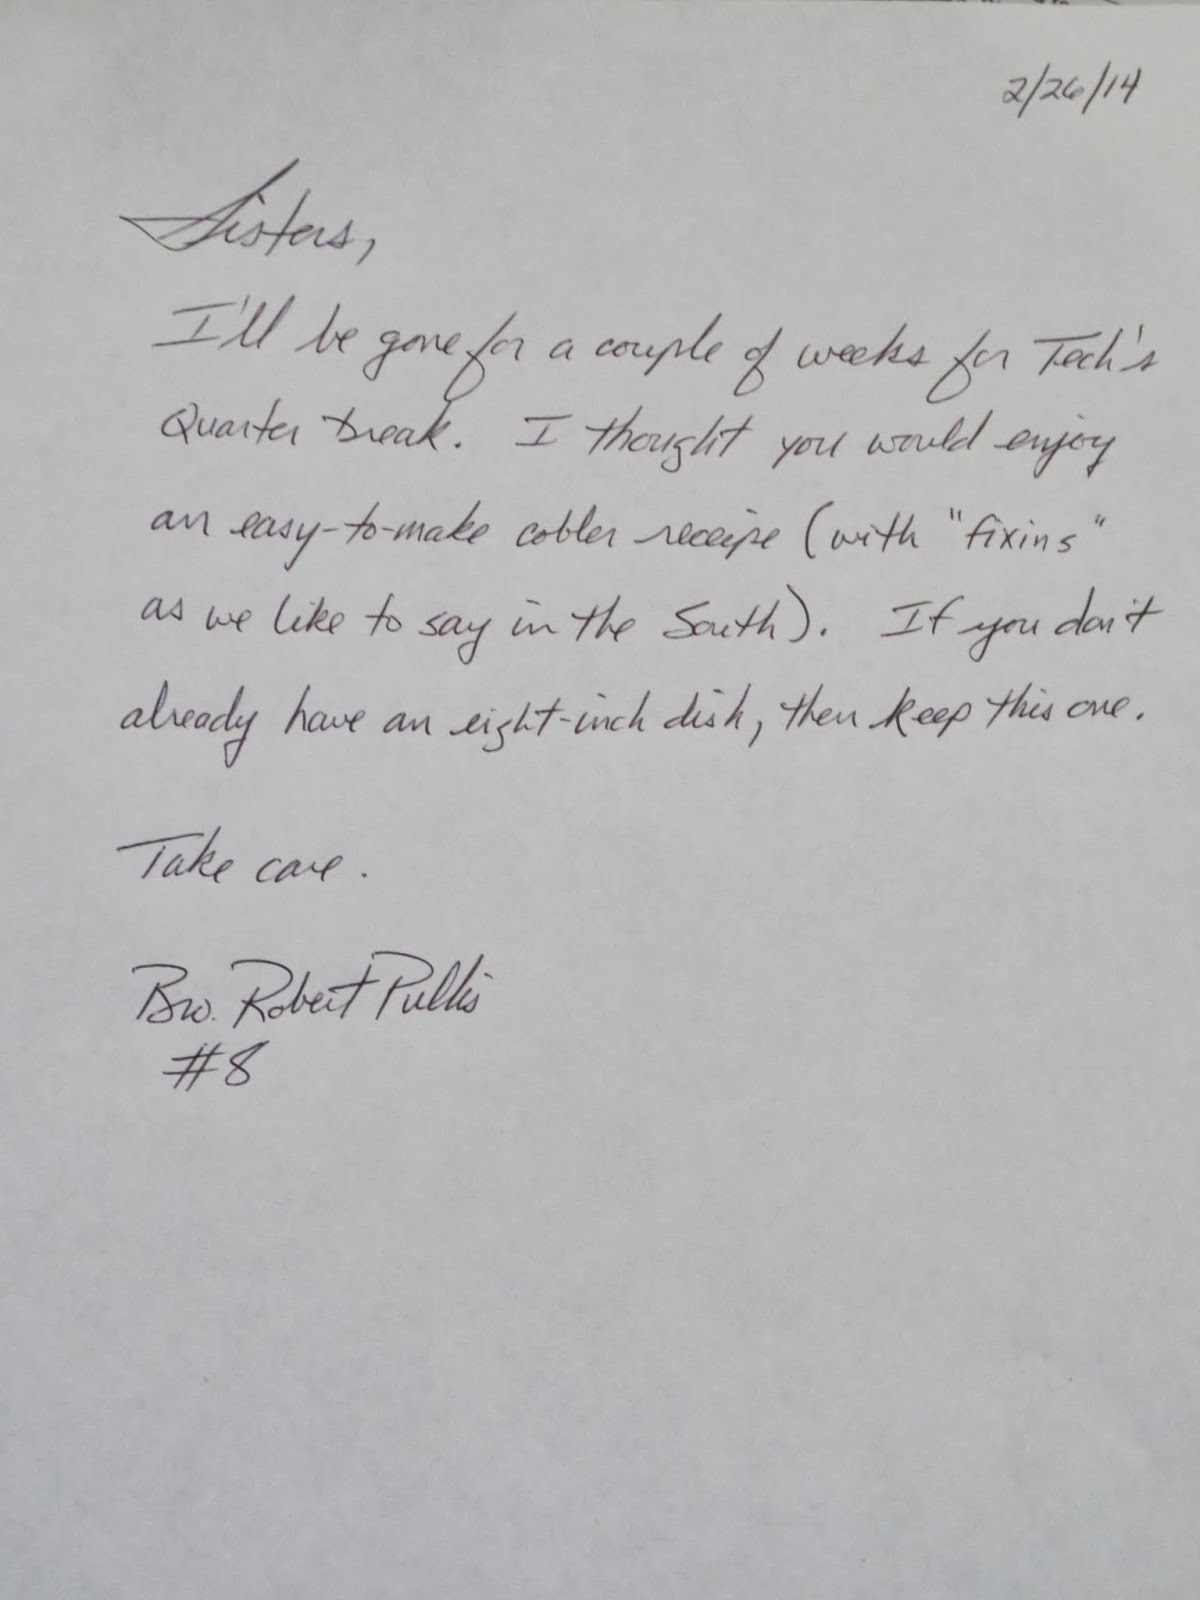 2/26/14
Sisters,
I'll be gone for a couple of weeks for Tech's
Quarter break. I thought you would enjoy
an easy-to-make cobler receipe (with "fixins"
as we like to say in the South). If you don't
already have an eight-inch dish, then keep this one.
Take care.
Bro. Robert Pullis
#8